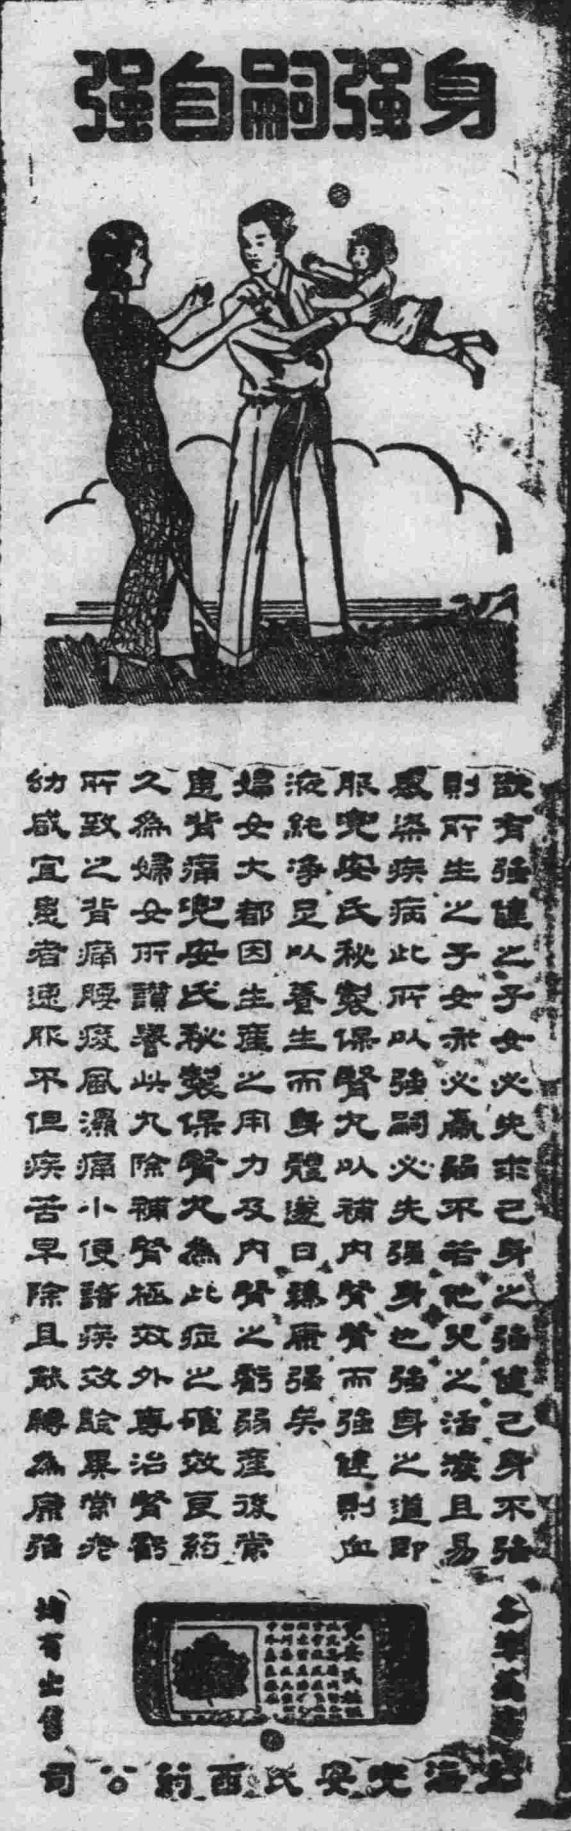 身强嗣自强
欲有强健之子女必先求己身之强健己身不强
則所生之子女亦必羸弱不若他兒之活潑且易
感染疾病此所以强嗣必先强身也强身之道即
服兜安氏秘製保腎丸以補內腎腎而强健則血
液純淨足以養生而身體遂日臻康强矣
婦女大都因生產之用力及內腎之虧弱產後常
患背痛兜安氏秘製保腎丸為此症之確效良藥
久為婦女所讚譽此丸除補腎極效外專治腎虧
所致之背痛腰痠風濕痛小便諸疾效驗異常老
幼咸宜患者速服不但疾苦早除且能轉為康强
均有出售
上海兜安氏西藥公司